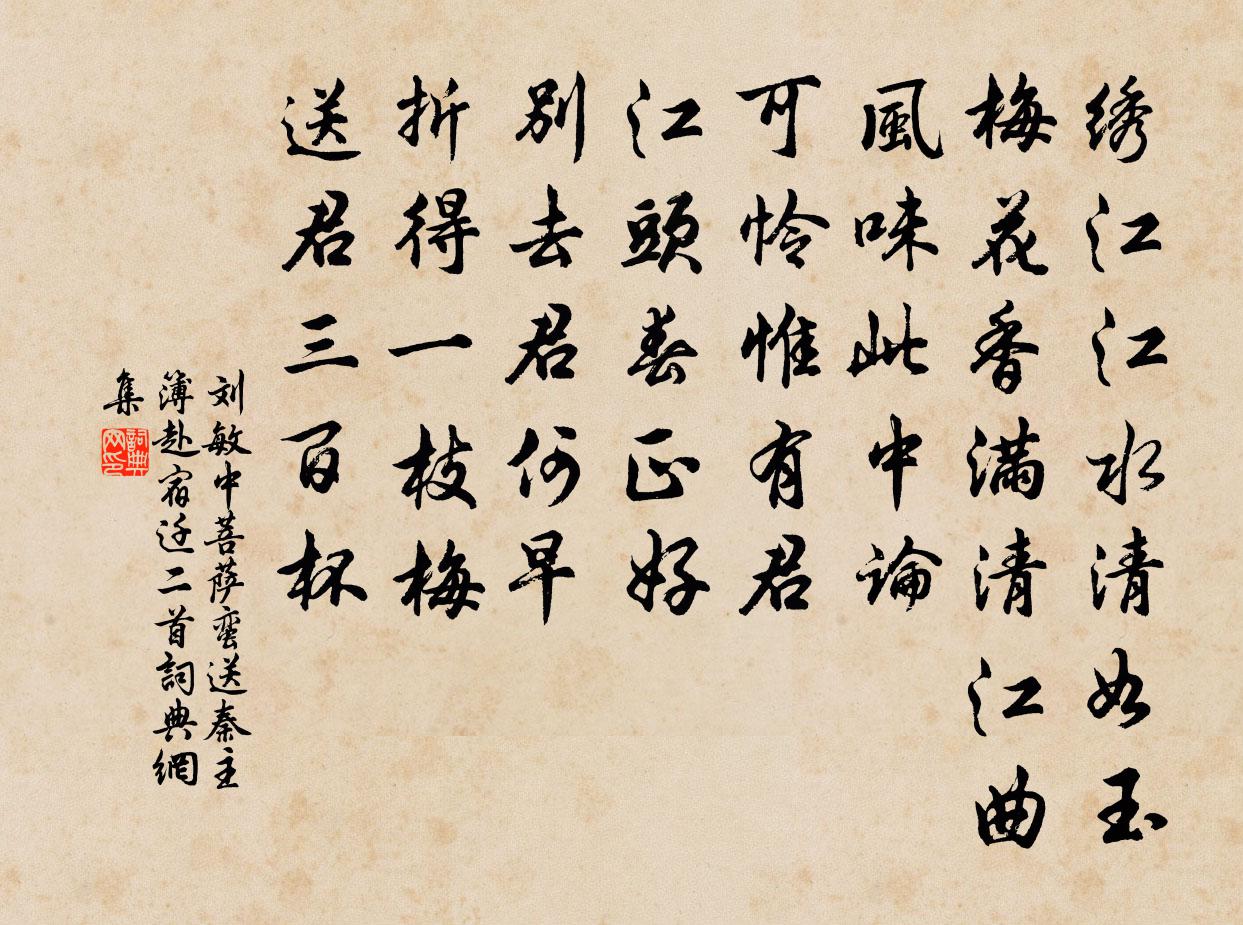 绣江江水清如玉
梅花香满清江曲
風味此中論
可怜惟有君
江頭春正好
别去君何早
折得一枝梅
送君三百杯
刘敏中菩萨蛮送秦主
簿赴宿迁二首詞典網
集
詞典网印